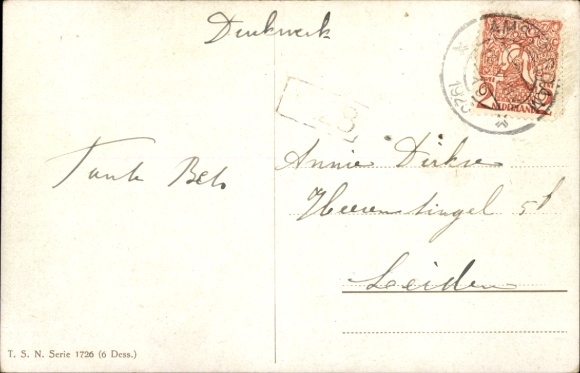 Drukwerk
AMSTERDAM
1923
2
NEDERLAND
Tante Bets
Annie Dirkse
Heerensingel 5b
Leiden
T. S. N. Serie 1726 (6 Dess.)